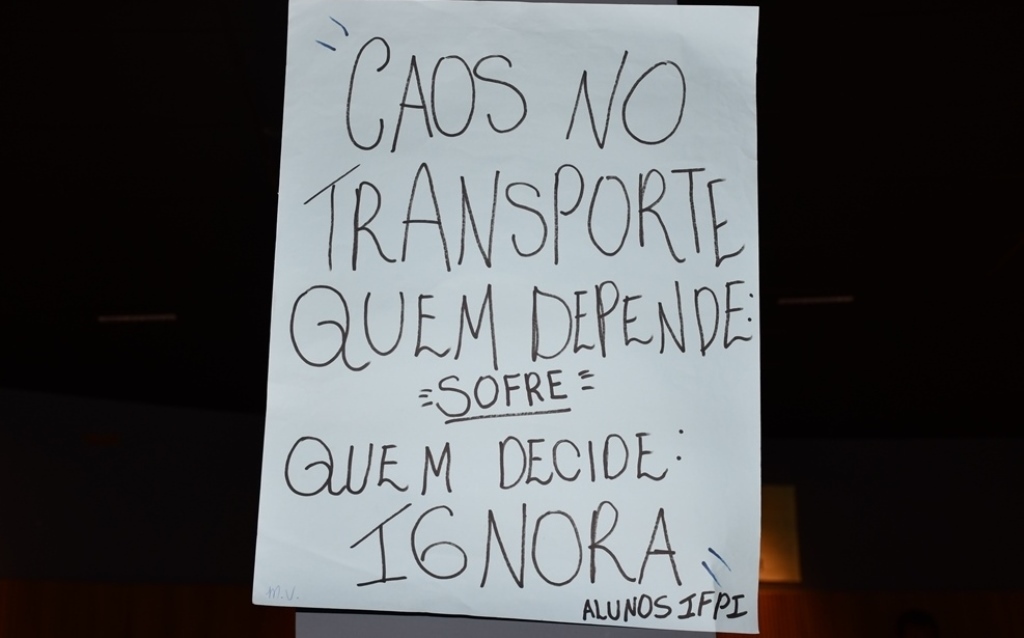 "CAOS NO
TRANSPORTE
QUEM DEPENDE:
=SOFRE=
QUEM DECIDE:
IGNORA"
ALUNOS IFPI
M.V.